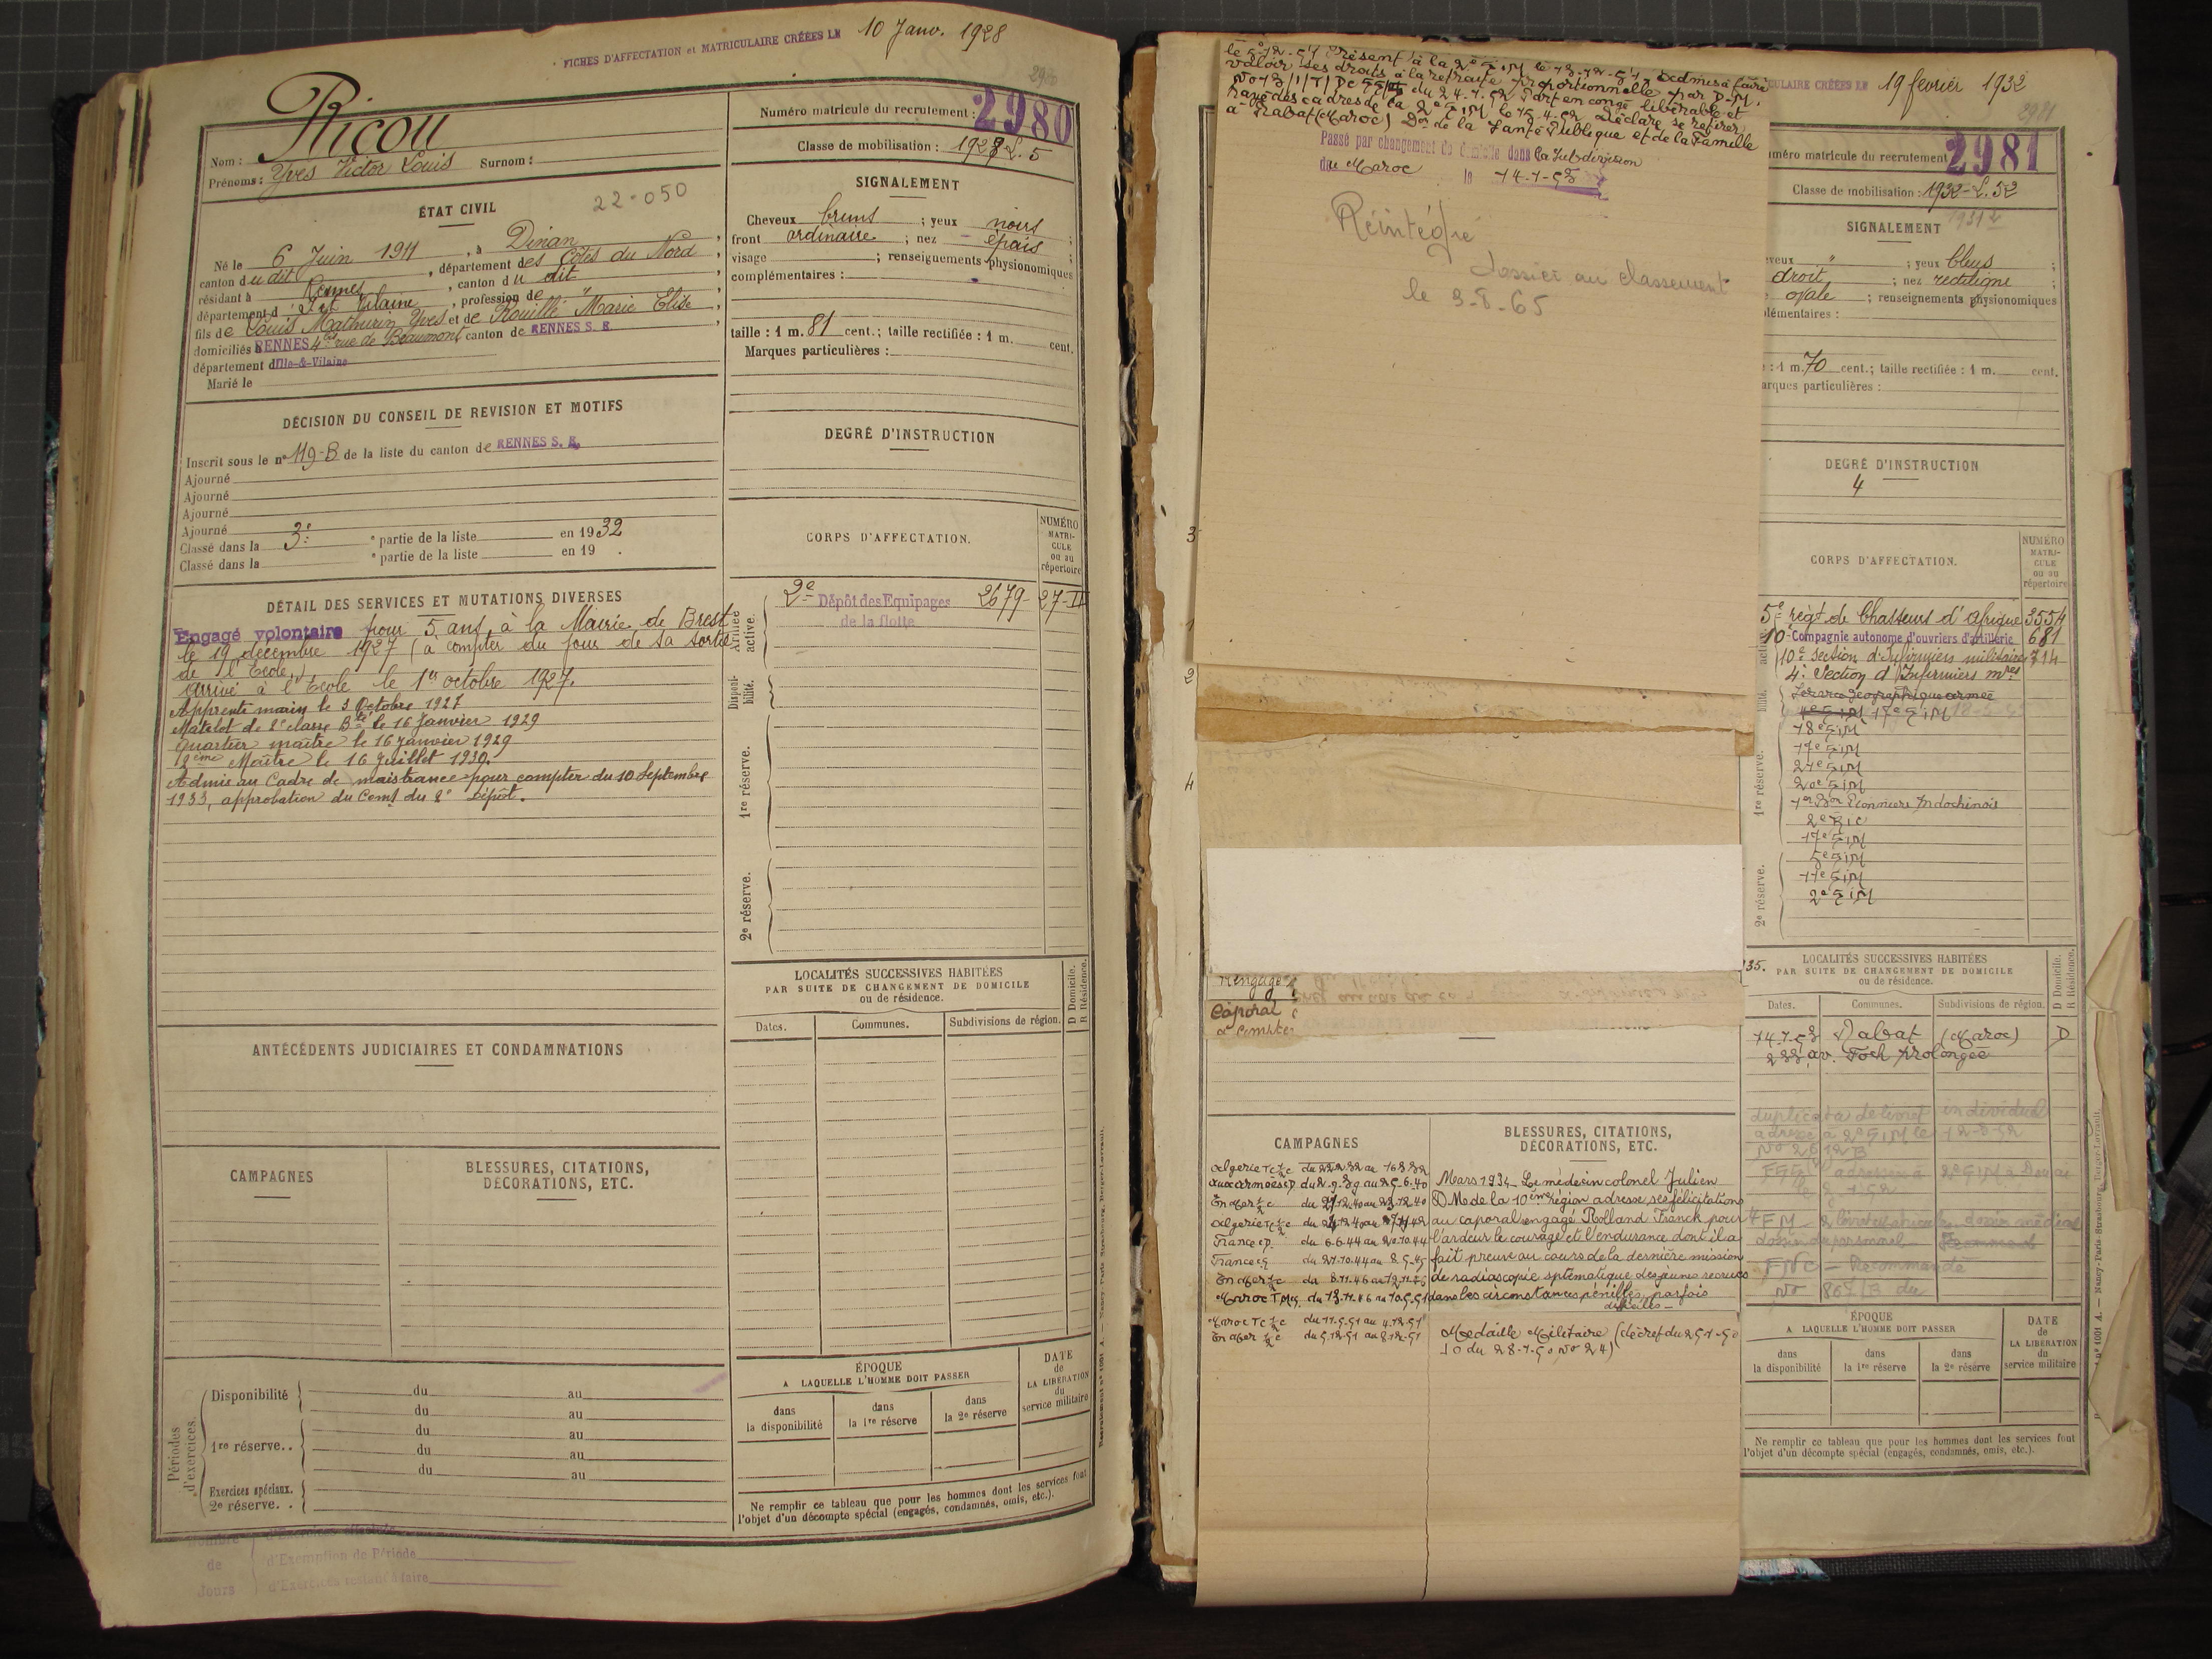 FICHES D'AFFECTATION et MATRICULAIRE CRÉÉES LE 10 Janv. 1928
Nom : Ricou
Prénoms : Yves Victor Louis Surnom :
22-050
ÉTAT CIVIL
Né le 6 Juin 1911, à Dinan,
canton du dit, département des Côtes du Nord,
résidant à Rennes, canton du dit,
département d'Ille et Vilaine, profession de "
fils de Louis Mathurin Yves et de Rouillé Marie Elise,
domiciliés à RENNES 4 rue de Beaumont canton de RENNES S. E.,
département d'Ille-&-Vilaine
Marié le
DÉCISION DU CONSEIL DE REVISION ET MOTIFS
Inscrit sous le n° 119-B de la liste du canton de RENNES S. E.
Ajourné
Ajourné
Ajourné
Ajourné
Classé dans la 3e ° partie de la liste en 1932
Classé dans la ° partie de la liste en 19 .
DÉTAIL DES SERVICES ET MUTATIONS DIVERSES
Engagé volontaire pour 5 ans, à la Mairie de Brest
le 19 décembre 1927 (à compter du jour de sa sortie
de l'Ecole.)
Arrivé à l'Ecole le 1er octobre 1927.
Apprenti marin le 3 Octobre 1927
Matelot de 2e classe Bté le 16 Janvier 1929
Quartier maître le 16 Janvier 1929
2ème Maître le 16 Juillet 1930.
Admis au Cadre de maistrance pour compter du 10 Septembre
1933, approbation du Comt du 2e Dépôt.
ANTÉCÉDENTS JUDICIAIRES ET CONDAMNATIONS
CAMPAGNES
BLESSURES, CITATIONS,
DÉCORATIONS, ETC.
Périodes d'exercices.
Disponibilité du au
du au
1re réserve.. du au
du au
du au
Exercices spéciaux.
2e réserve. .
Nombre de Jours
d'Exercices effectués
d'Exemption de Période
d'Exercices restant à faire
Numéro matricule du recrutement : 2980
Classe de mobilisation : 1928 - L. 5
SIGNALEMENT
Cheveux bruns ; yeux noirs ;
front ordinaire ; nez épais ;
visage ; renseignements physionomiques
complémentaires :
taille : 1 m. 81 cent.; taille rectifiée : 1 m. cent.
Marques particulières :
DEGRÉ D'INSTRUCTION
CORPS D'AFFECTATION.
NUMÉRO MATRI-CULE ou au répertoire
Armée active.
2e Dépôt des Equipages 2679- 27-II
de la flotte
Disponi-bilité.
1re réserve.
2e réserve.
LOCALITÉS SUCCESSIVES HABITÉES
PAR SUITE DE CHANGEMENT DE DOMICILE
ou de résidence.
D Domicile. R Résidence.
Dates. Communes. Subdivisions de région.
ÉPOQUE
A LAQUELLE L'HOMME DOIT PASSER
dans la disponibilité
dans la 1re réserve
dans la 2e réserve
DATE de LA LIBÉRATION du service militaire
Ne remplir ce tableau que pour les hommes dont les services font
l'objet d'un décompte spécial (engagés, condamnés, omis, etc.).
le 5-12-51 Présent à la 2e SIM le 13-12-51. Admis à faire
valoir ses droits à la retraite proportionnelle par D.M.
du 24.1.52 Part en congé libérable et
rayé des cadres de la 2e SIM le 15.4.52 Déclare se retirer
à Rabat (Maroc) Don de la Santé Publique et de la Famille
Passé par changement de domicile dans la Subdivision
du Maroc le 14-1-53
Réintégré
Dossier au classement
le 3-8-65
Rengagé
Caporal
à compter
CAMPAGNES
Algerie du 22.2.32 au 16.8.32
aux armées du 2.9.39 au 25.6.40
En Mer
Algerie
France du 6.6.44 au 20.10.44
France du 21.10.44 au 8.5.45
En Mer du 8.11.46 au 12.11.46
Maroc du 13.11.46 au 10.5.51
Maroc du 11.5.51 au 4.12.51
En Mer du 5.12.51 au 8.12.51
BLESSURES, CITATIONS,
DÉCORATIONS, ETC.
Mars 1934 Le médecin colonel Julien
D M de la 10ème région adresse ses félicitations
au caporal engagé Rolland Franck pour
l'ardeur le courage et l'endurance dont il a
fait preuve au cours de la dernière mission
de radioscopie systématique des jeunes recrues
dans les circonstances pénibles, parfois
difficiles -
Medaille Militaire (décret du 25-1-50
JO du 28-1-50 No 24)
MATRICULAIRE CRÉÉES LE 19 fevrier 1932
2981
Numéro matricule du recrutement 2981
Classe de mobilisation : 1932 - L. 52
SIGNALEMENT
Cheveux " ; yeux bleus ;
droit ; nez rectiligne ;
ovale ; renseignements physionomiques
complémentaires :
: 1 m. 70 cent.; taille rectifiée : 1 m. cent.
Marques particulières :
DEGRÉ D'INSTRUCTION
4
CORPS D'AFFECTATION.
NUMÉRO MATRI-CULE ou au répertoire
5e régt de Chasseurs d'Afrique 3554
10e Compagnie autonome d'ouvriers d'artillerie 681
10e Section d'Infirmiers militaires 714
4e Section d'Infirmiers mres
Service Géographique armée
4e SIM 17e SIM
18e SIM
17e SIM
27e SIM
20e SIM
1er Bon Pionniers Indochinois
2e RIC
17e SIM
5e SIM
11e SIM
2e SIM
1re réserve.
2e réserve.
LOCALITÉS SUCCESSIVES HABITÉES
PAR SUITE DE CHANGEMENT DE DOMICILE
ou de résidence.
D Domicile. R Résidence.
Dates. Communes. Subdivisions de région.
14.1.53 Rabat (Maroc) D
233, av. Foch prolongée
duplicata de livret individuel
adressé à 2e SIM le 12-8-52
ÉPOQUE
A LAQUELLE L'HOMME DOIT PASSER
dans la disponibilité
dans la 1re réserve
dans la 2e réserve
DATE de LA LIBÉRATION du service militaire
Ne remplir ce tableau que pour les hommes dont les services font
l'objet d'un décompte spécial (engagés, condamnés, omis, etc.).